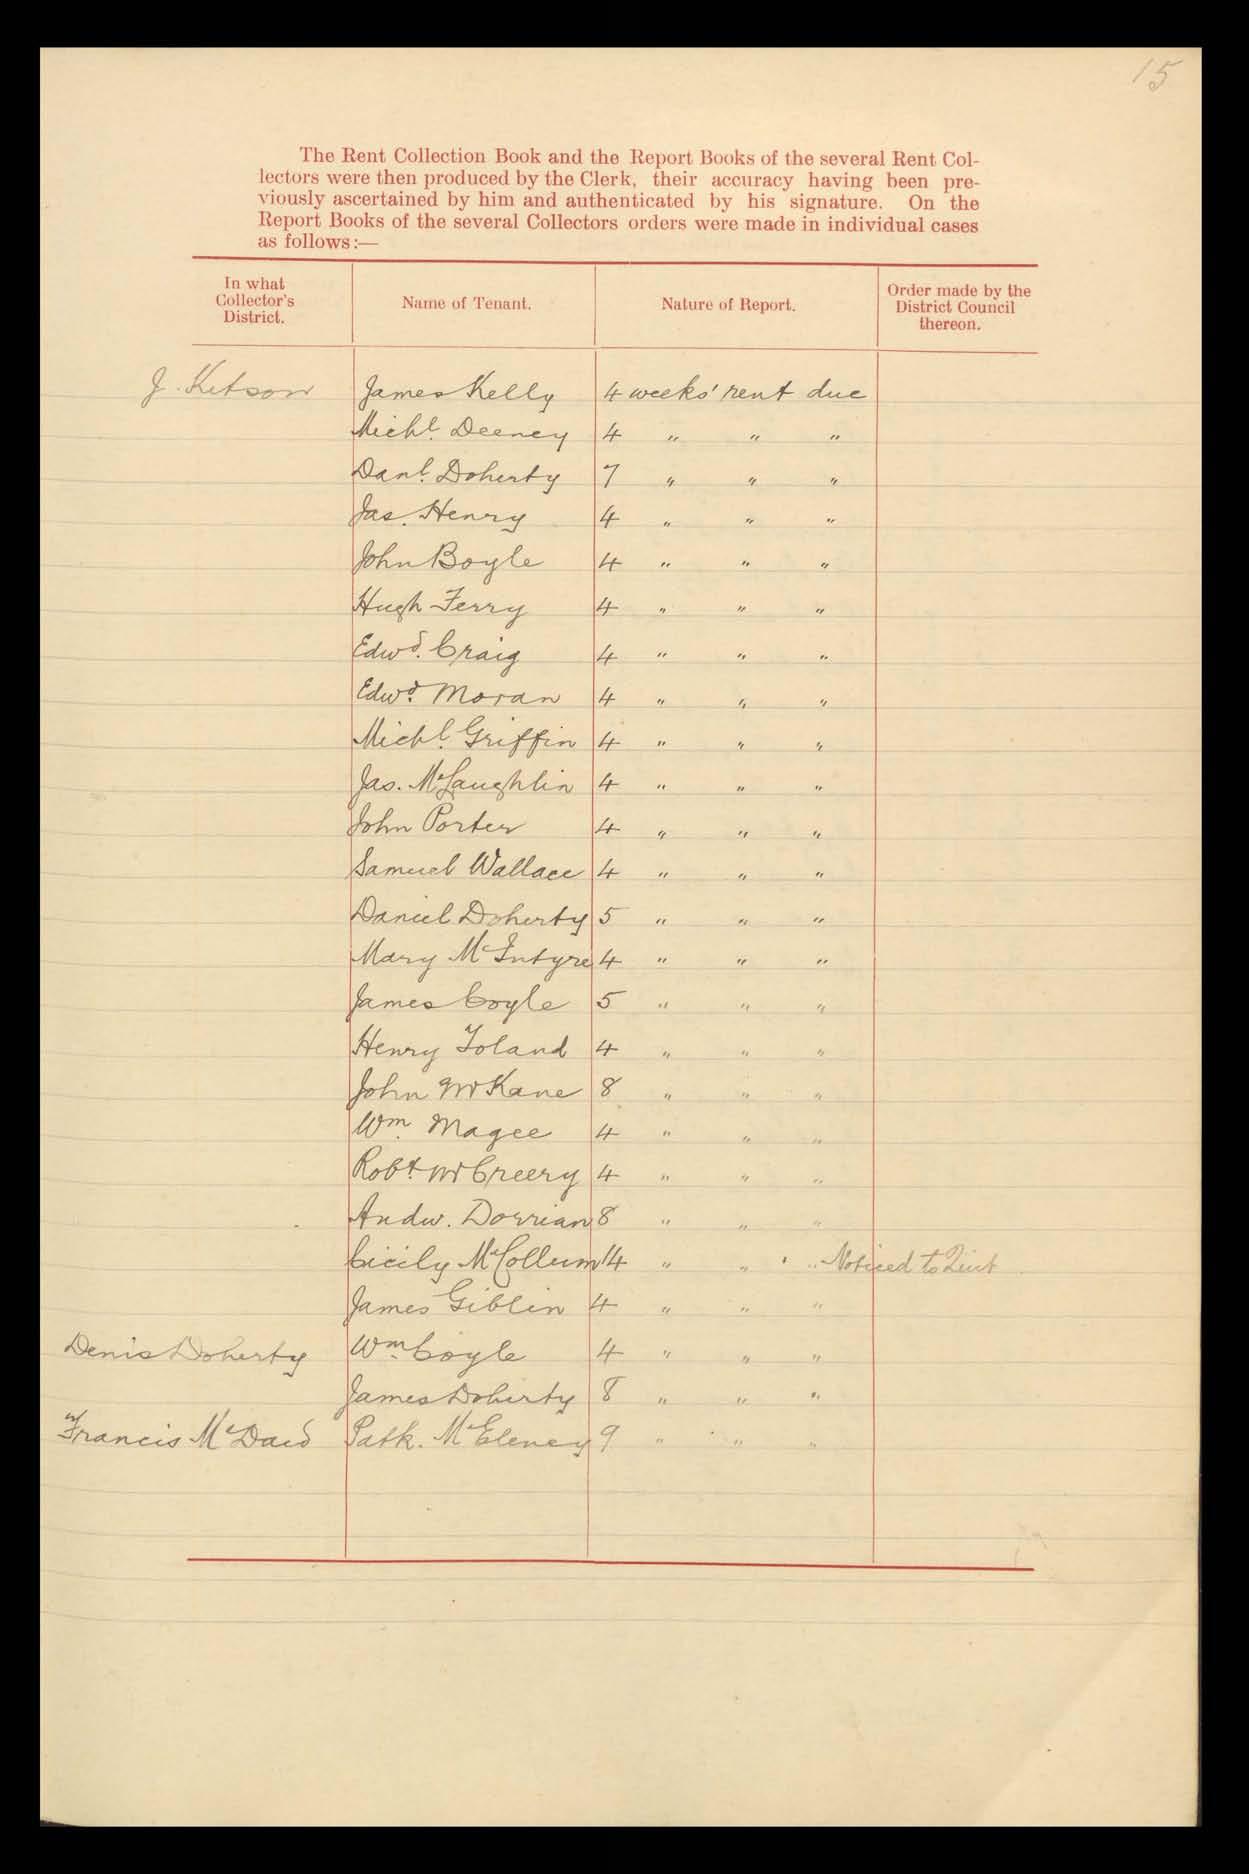 15
The Rent Collection Book and the Report Books of the several Rent Col-
lectors were then produced by the Clerk, their accuracy having been pre-
viously ascertained by him and authenticated by his signature. On the
Report Books of the several Collectors orders were made in individual cases
as follows:—
In what Collector's District. Name of Tenant. Nature of Report. Order made by the District Council thereon.
J. Kitson James Kelly 4 weeks' rent due
Michl. Deeney 4 " " "
Danl. Doherty 7 " " "
Jas. Henry 4 " " "
John Boyle 4 " " "
Hugh Ferry 4 " " "
Edwd. Craig 4 " " "
Edwd. Moran 4 " " "
Michl. Griffin 4 " " "
Jas. McLaughlin 4 " " "
John Porter 4 " " "
Samuel Wallace 4 " " "
Daniel Doherty 5 " " "
Mary McIntyre 4 " " "
James Coyle 5 " " "
Henry Toland 4 " " "
John McKane 8 " " "
Wm. Magee 4 " " "
Robt. McCreery 4 " " "
Andw. Dorrian 8 " " "
Cicily McCollum 14 " " " Noticed to Quit
James Giblin 4 " " "
Denis Doherty Wm. Coyle 4 " " "
James Doherty 8 " " "
Francis McDaid Patk. McEleney 9 " " "